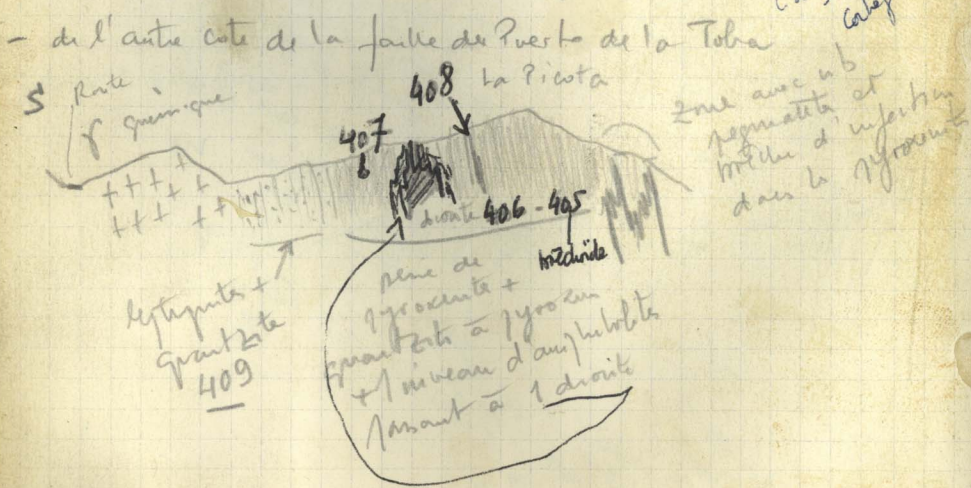 - de l'autre coté de la faille du Puerto de la Toba
408 La Picota
S Route
γ
407
b
zone avec nb
pegmatites et
brèche d'injection
dans la pyroxenite
diorite 406 - 405
brèchoïde
leptynites +
quartzite
409
série de
pyroxenite +
quartzite à pyroxène
+ 1 niveau d'amphibolites
passant à 1 diorite